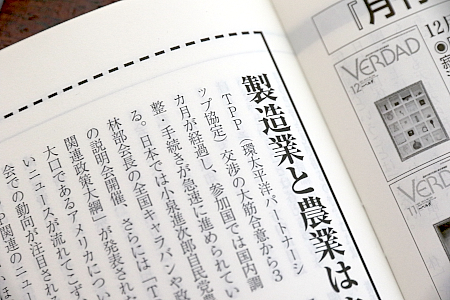 製造業と農業は
TPP(環太平洋パートナーシ
ップ協定)交渉の大筋合意から3
カ月が経過し、参加国では国内調
整・手続きが急速に進められてい
る。日本では小泉進次郎自民党農
林部会長の全国キャラバンや政
の説明会開催、さらには「T
関連政策大綱」が発表された
大口であるアメリカについ
いニュースが流れてこず
会での動向が注目され
P関連のニュ
『月刊
12月
VERDAD
12
VERDAD
11